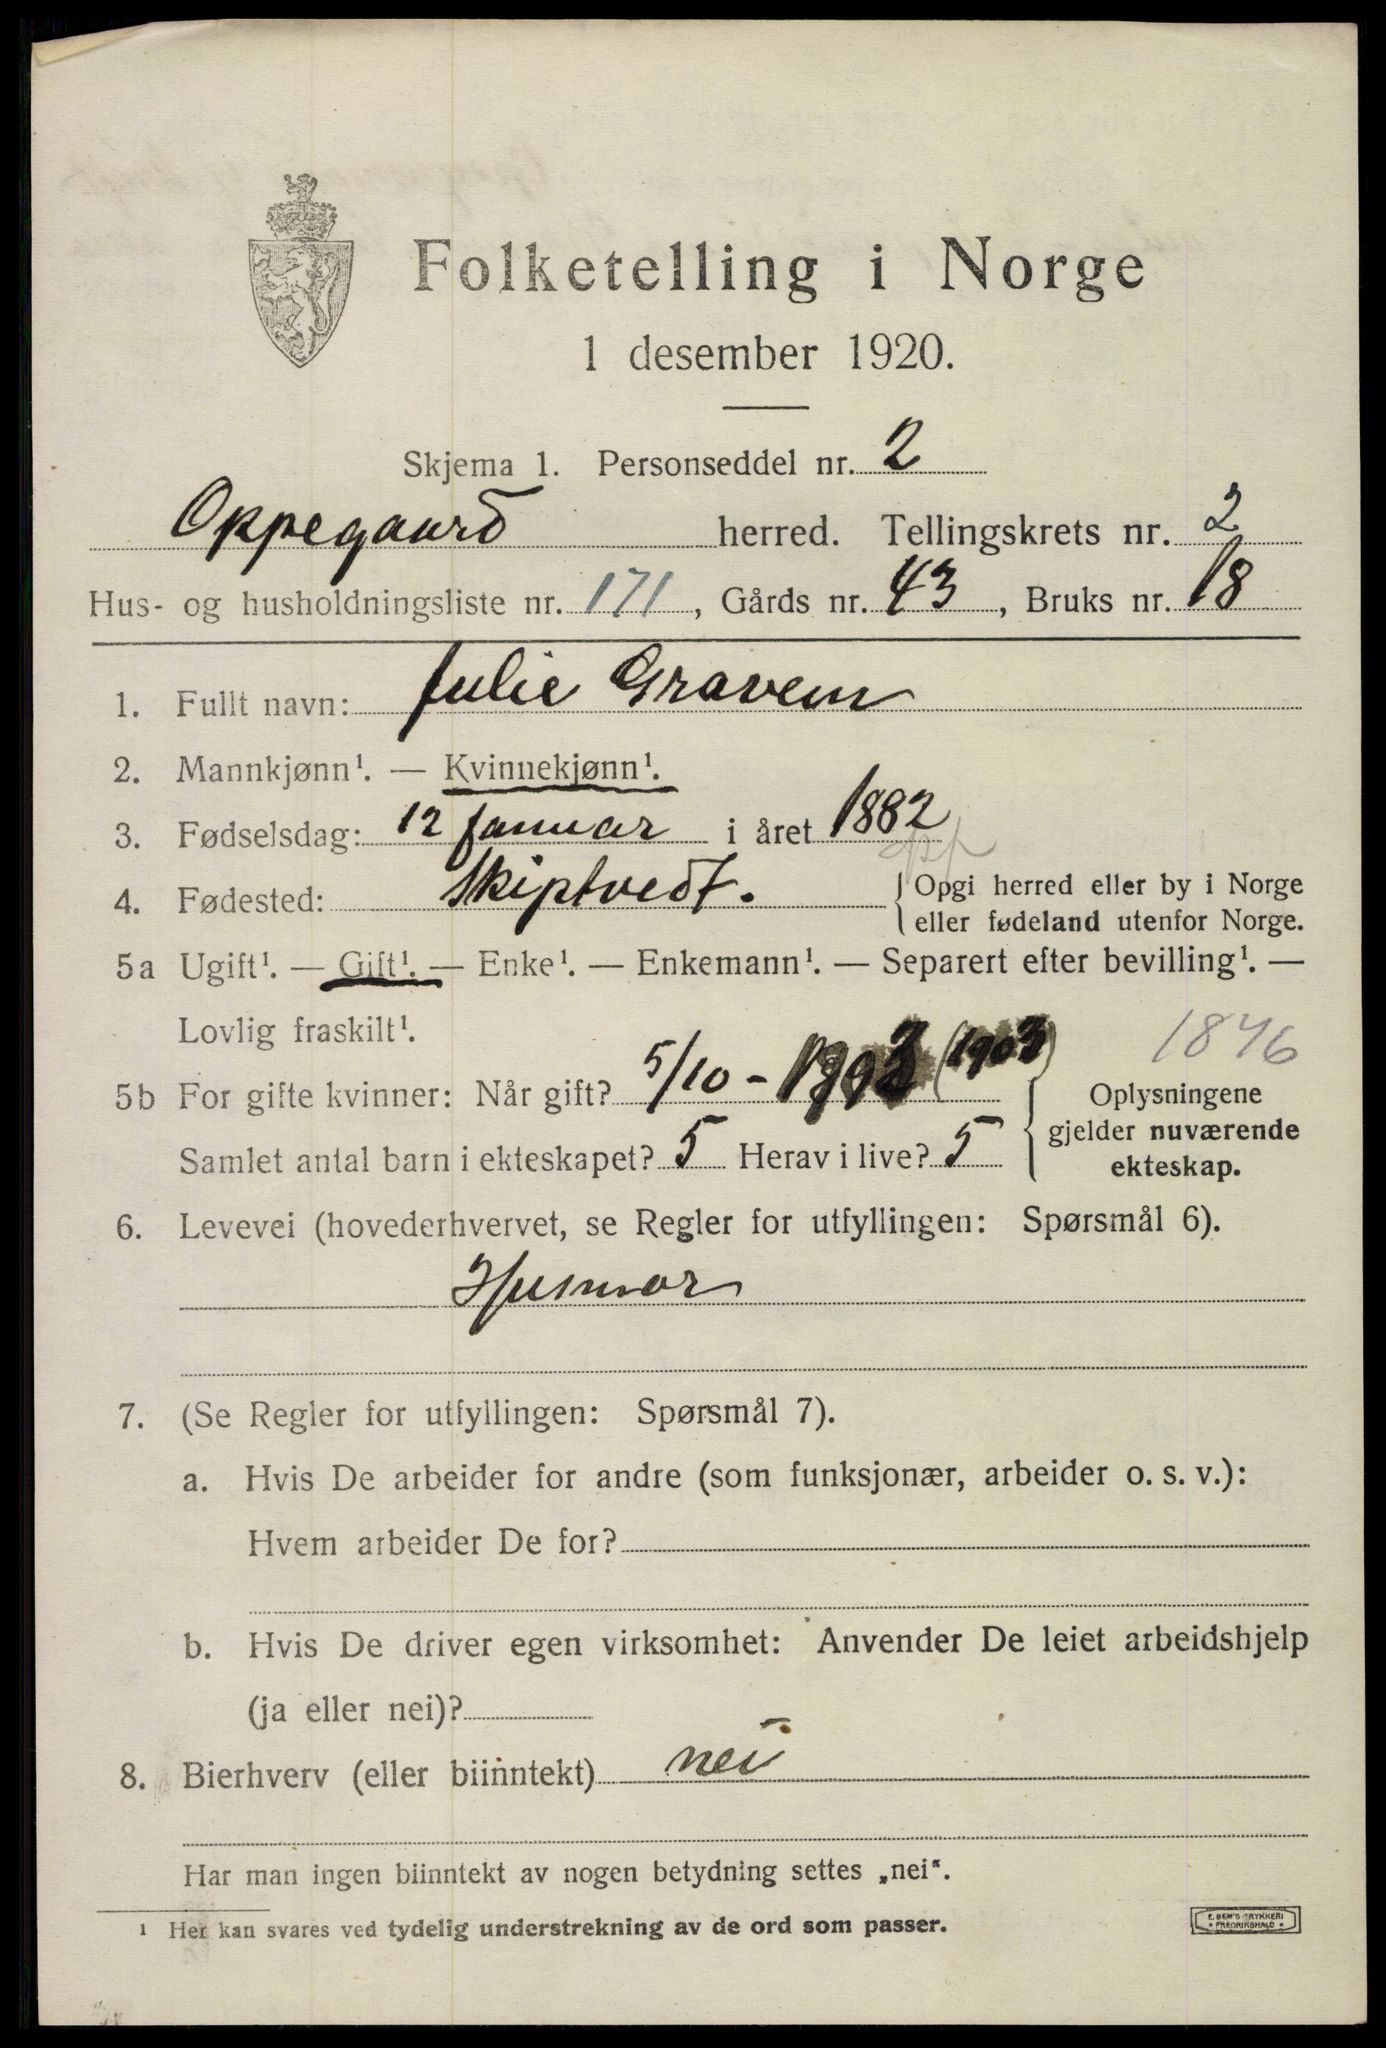 Folketelling i Norge
1 desember 1920.
Skjema 1. Personseddel nr. 2
Oppegaard herred. Tellingskrets nr. 2
Hus- og husholdningsliste nr. 171, Gårds nr. 43, Bruks nr. 18
1. Fullt navn: Julie Gravem
2. Mannkjønn¹. — Kvinnekjønn¹.
3. Fødselsdag: 12 Januar i året 1882
4. Fødested: Skiptvedt. Opgi herred eller by i Norge
eller fødeland utenfor Norge.
5a Ugift¹. — Gift¹. — Enke¹. — Enkemann¹. — Separert efter bevilling¹. —
Lovlig fraskilt¹.
1846
5b For gifte kvinner: Når gift? 5/10 - 1903 (1903) Oplysningene
gjelder nuværende
Samlet antal barn i ekteskapet? 5 Herav i live? 5 ekteskap.
6. Levevei (hovederhvervet, se Regler for utfyllingen: Spørsmål 6).
Husmor
7. (Se Regler for utfyllingen: Spørsmål 7).
a. Hvis De arbeider for andre (som funksjonær, arbeider o. s. v.):
Hvem arbeider De for?
b. Hvis De driver egen virksomhet: Anvender De leiet arbeidshjelp
(ja eller nei)?
8. Bierhverv (eller biinntekt) nei
Har man ingen biinntekt av nogen betydning settes „nei“.
¹ Her kan svares ved tydelig understrekning av de ord som passer.
E. SEM'S TRYKKERI
* FREDRIKSHALD *